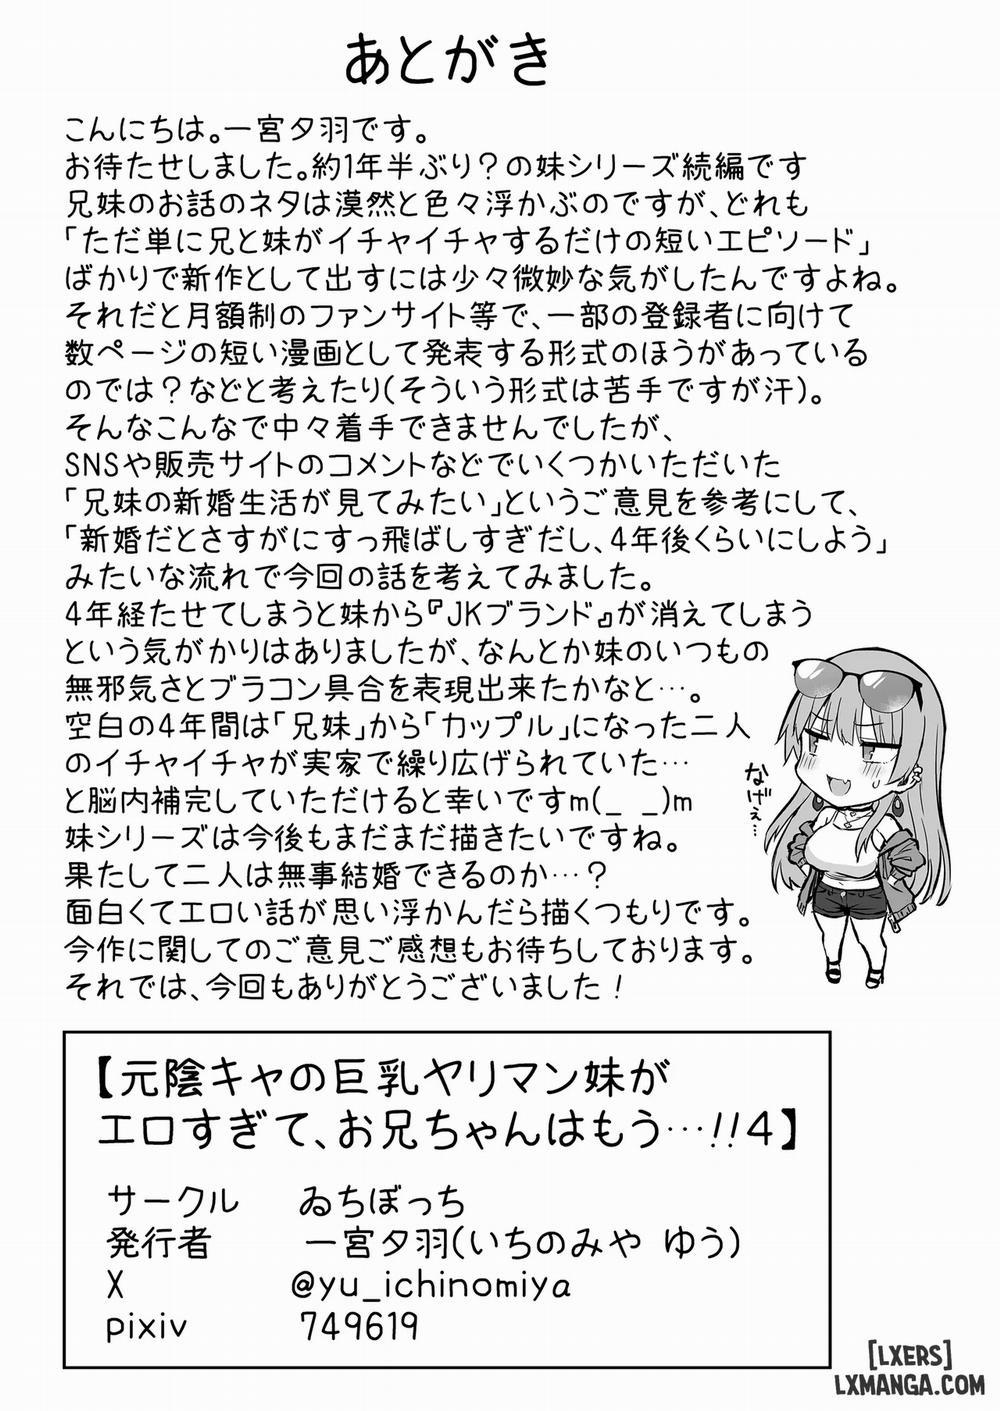 あとがき
こんにちは。一宮夕羽です。
お待たせしました。約1年半ぶり？の妹シリーズ続編です
兄妹のお話のネタは漠然と色々浮かぶのですが、どれも
「ただ単に兄と妹がイチャイチャするだけの短いエピソード」
ばかりで新作として出すには少々微妙な気がしたんですよね。
それだと月額制のファンサイト等で、一部の登録者に向けて
数ページの短い漫画として発表する形式のほうがあっている
のでは？などと考えたり(そういう形式は苦手ですが汗)。
そんなこんなで中々着手できませんでしたが、
SNSや販売サイトのコメントなどでいくつかいただいた
「兄妹の新婚生活が見てみたい」というご意見を参考にして、
「新婚だとさすがにすっ飛ばしすぎだし、4年後くらいにしよう」
みたいな流れで今回の話を考えてみました。
4年経たせてしまうと妹から『JKブランド』が消えてしまう
という気がかりはありましたが、なんとか妹のいつもの
無邪気さとブラコン具合を表現出来たかなと…。
空白の4年間は「兄妹」から「カップル」になった二人
のイチャイチャが実家で繰り広げられていた…
と脳内補完していただけると幸いですm(_ _)m
妹シリーズは今後もまだまだ描きたいですね。
果たして二人は無事結婚できるのか…？
面白くてエロい話が思い浮かんだら描くつもりです。
今作に関してのご意見ご感想もお待ちしております。
それでは、今回もありがとうございました！
なげぇ…
【元陰キャの巨乳ヤリマン妹が
エロすぎて、お兄ちゃんはもう…!!4】
サークル ゐちぼっち
発行者 一宮夕羽(いちのみや ゆう)
X @yu_ichinomiya
pixiv 749619
[LXERS]
LXMANGA.COM